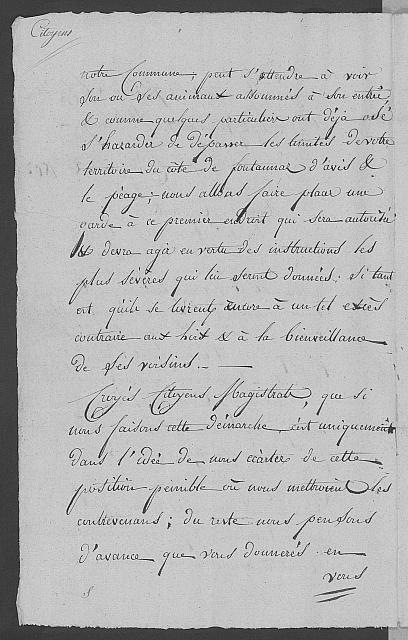 Citoyens
notre Commune, peut s'attendre à voir
son ou ses animaux assommés à son entrée
& comme quelques particulier ont déjà osé
s'hazarder de dépasser les limites de votre
territoire du côté de fontannaz d'avis &
le péage; nous allons faire placer une
garde à ce premier endroit qui sera autorisée
& devra agir en vertu des instructions les
plus sévères qui lui seront données; si tant
est, qu'ils se livrent encore à un tel excès
contraire aux loix & à la bienveillance
de ses voisins. —
Croyés Citoyens Magistrats, que si
nous faisons cette démarche, c'est uniquement
dans l'idée de nous écarter de cette
position pénible où nous mettroient les
contrevenans; du reste nous pensons
d'avance que vous donnerés en
vous